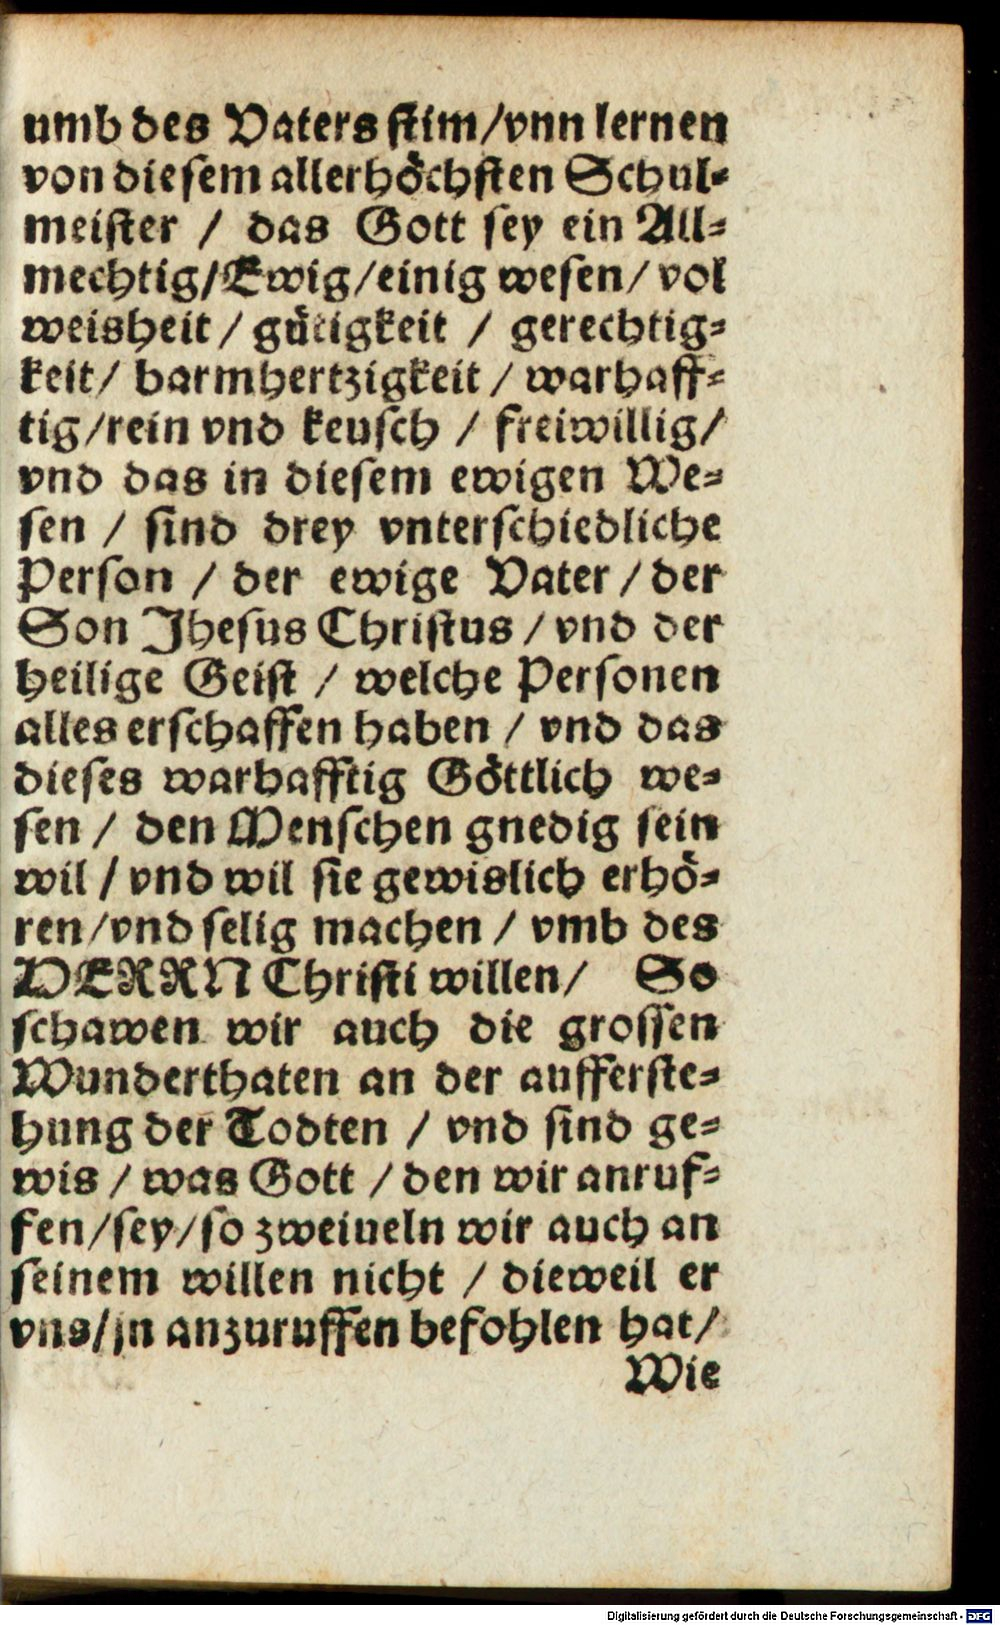 umb des Vaters ſtim/vnn lernen
von dieſem allerhöchſten Schul⸗
meiſter / das Gott ſey ein All⸗
mechtig/Ewig/einig weſen/ vol
weisheit / gütigkeit / gerechtig⸗
keit/ barmhertzigkeit / warhaff⸗
tig/rein vnd keuſch / freiwillig/
vnd das in dieſem ewigen We⸗
ſen / ſind drey vnterſchiedliche
Perſon / der ewige Vater / der
Son Jheſus Chriſtus / vnd der
heilige Geiſt / welche Perſonen
alles erſchaffen haben / vnd das
dieſes warhafftig Göttlich we⸗
ſen / den Menſchen gnedig ſein
wil / vnd wil ſie gewislich erhö⸗
ren/vnd ſelig machen / vmb des
HERRN Chriſti willen/ So
ſchawen wir auch die groſſen
Wunderthaten an der aufferſte⸗
hung der Todten / vnd ſind ge⸗
wis / was Gott / den wir anruf⸗
fen/ſey/ſo zweiueln wir auch an
ſeinem willen nicht / dieweil er
vns/jn anzuruffen befohlen hat/
Wie
Digitalisierung gefördert durch die Deutsche Forschungsgemeinschaft - DFG